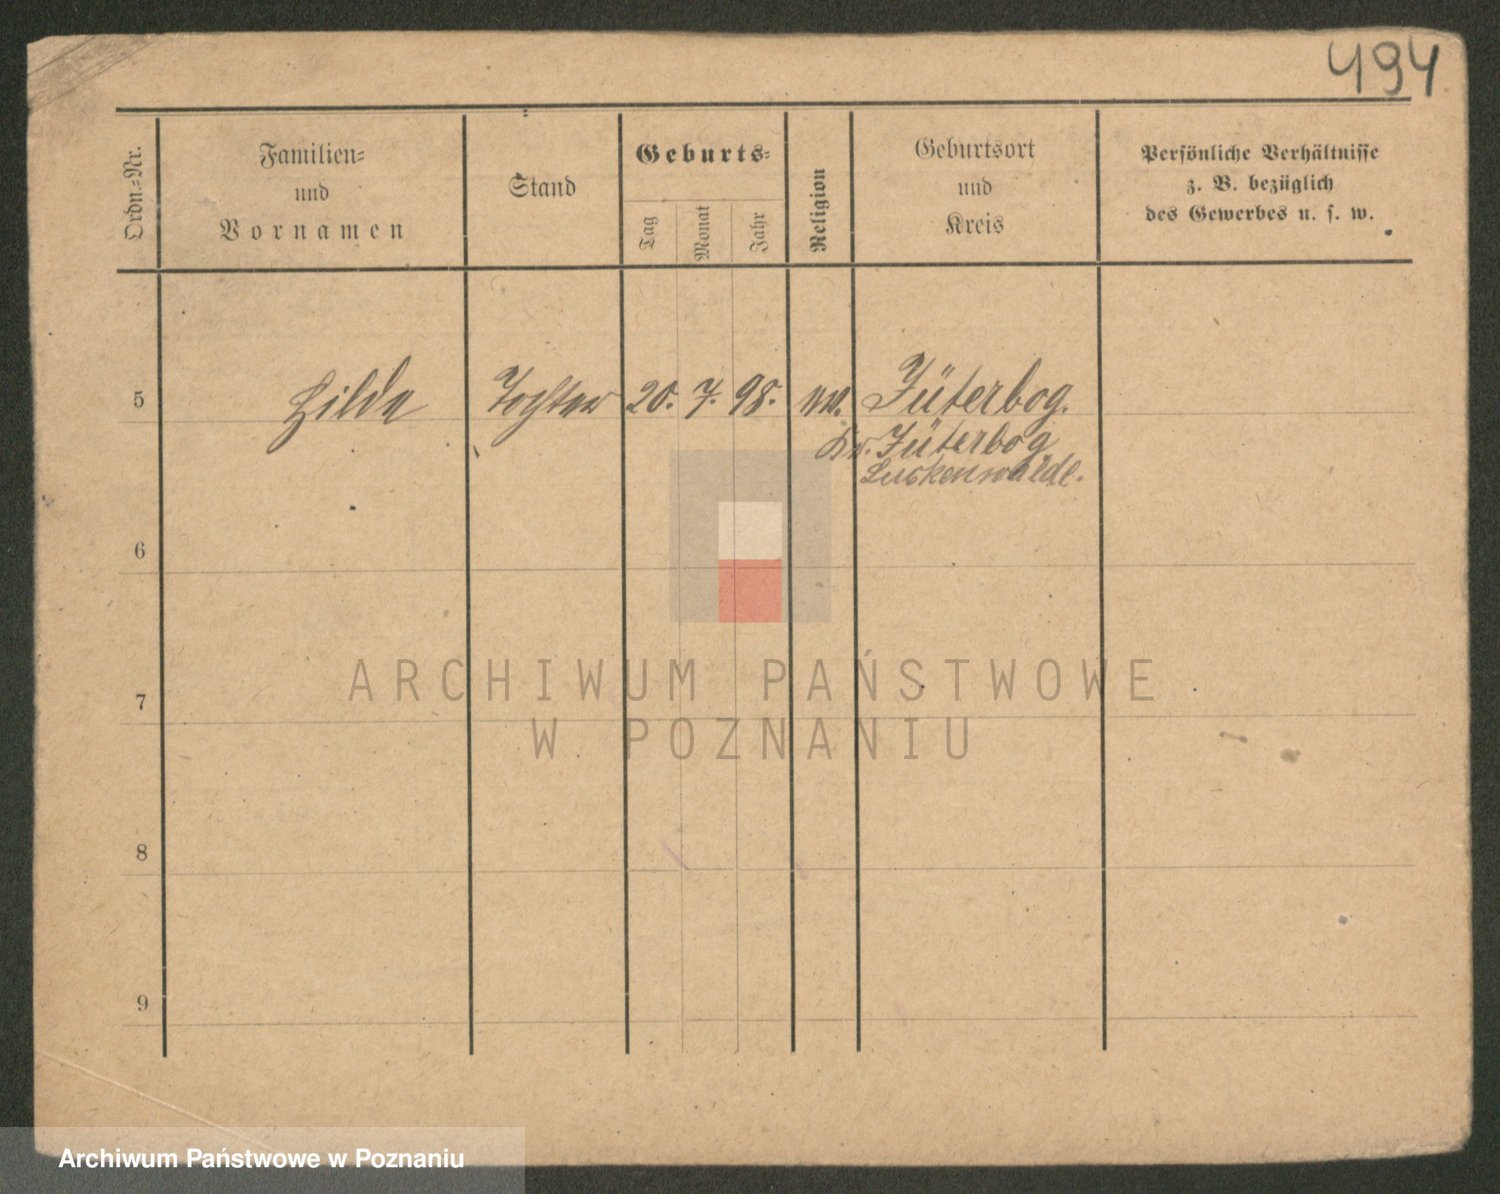 494
Ordn.-Nr.
Familien-
und
Vornamen
Stand
Geburts-
Tag
Monat
Jahr
Religion
Geburtsort
und
Kreis
Persönliche Verhältnisse
z. B. bezüglich
des Gewerbes u. s. w.
5 Hilde Tochter 20. 7. 98. Jüterbog.
Kr. Jüterbog
Luckenwalde.
6
7
8
9
ARCHIWUM PAŃSTWOWE
W POZNANIU
Archiwum Państwowe w Poznaniu